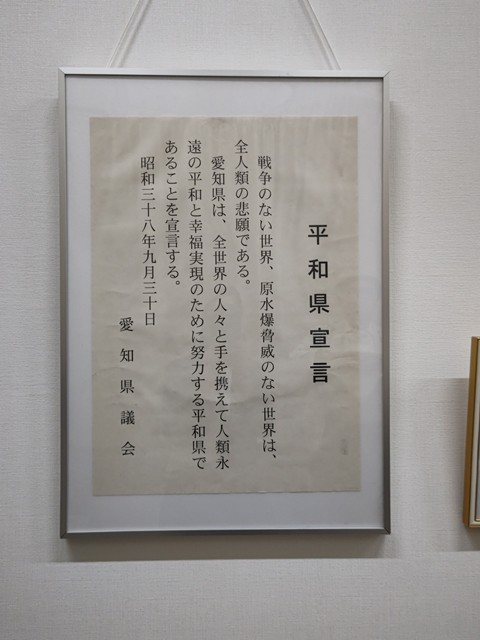 平和県宣言
戦争のない世界、原水爆脅威のない世界は、
全人類の悲願である。
愛知県は、全世界の人々と手を携えて人類永
遠の平和と幸福実現のために努力する平和県で
あることを宣言する。
昭和三十八年九月三十日
愛知県議会